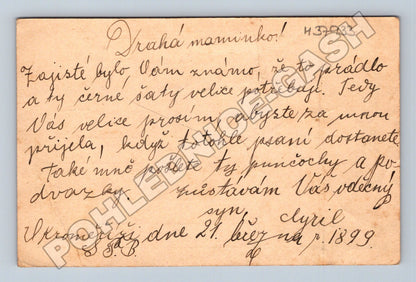 Drahá maminko!
437933
Zajisté bylo, Vám známo, že to prádlo
a ty černé šaty velice potřebuji. Tedy
Vás velice prosím abyste za mnou
přijela, když totohle psaní dostanete
Také mně pošlete ty punčochy a po-
dvazky. zůstávám Vás vděčný
syn. Cyril
V Kroměříži dne 21. březma r. 1899.
POHLEDNICE.CASH